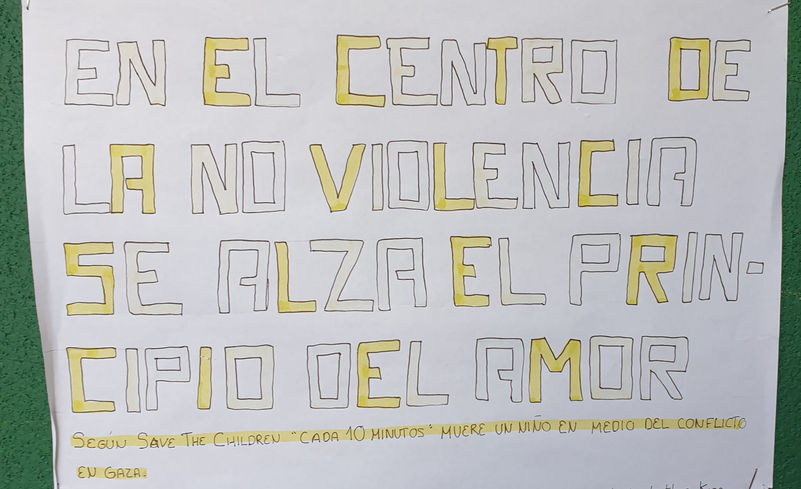 EN EL CENTRO DE
LA NO VIOLENCIA
SE ALZA EL PRIN-
CIPIO DEL AMOR
SEGÚN SAVE THE CHILDREN "CADA 10 MINUTOS" MUERE UN NIÑO EN MEDIO DEL CONFLICTO
EN GAZA.